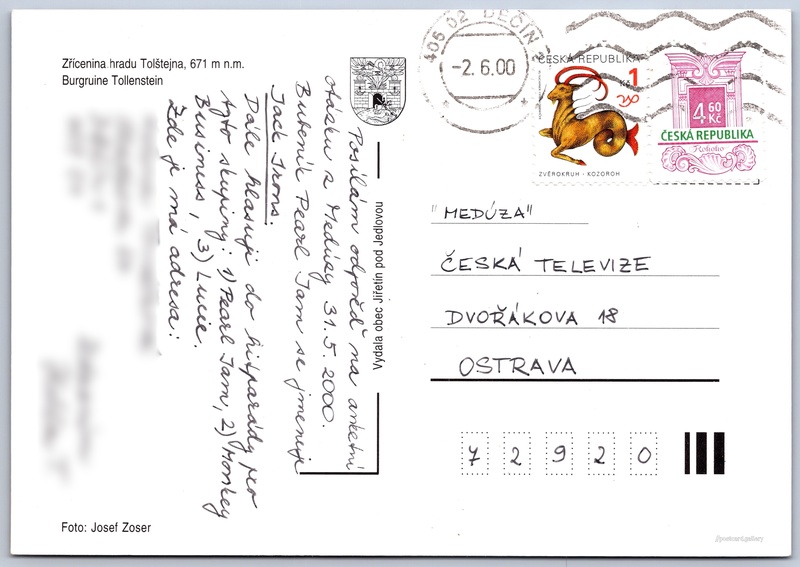 Zřícenina hradu Tolštejna, 671 m n.m.
Burgruine Tollenstein
Posílám odpověď na anketní
otázku z Medúzy 31.5.2000.
Bubeník Pearl Jam se jmenuje
Jack Irons.
Dále hlasuji do hitparády pro
tyto skupiny: 1) Pearl Jam, 2) Monkey
Business, 3) Lucie.
Zde je má adresa:
Foto: Josef Zoser
Vydala obec Jiřetín pod Jedlovou
405 02 DĚČÍN 2
-2.6.00
ČESKÁ REPUBLIKA
1
Kč
ZVĚROKRUH - KOZOROH
4 60
Kč
ČESKÁ REPUBLIKA
Rokoko
"MEDÚZA"
ČESKÁ TELEVIZE
DVOŘÁKOVA 18
OSTRAVA
7 2 9 2 0
//postcard.gallery